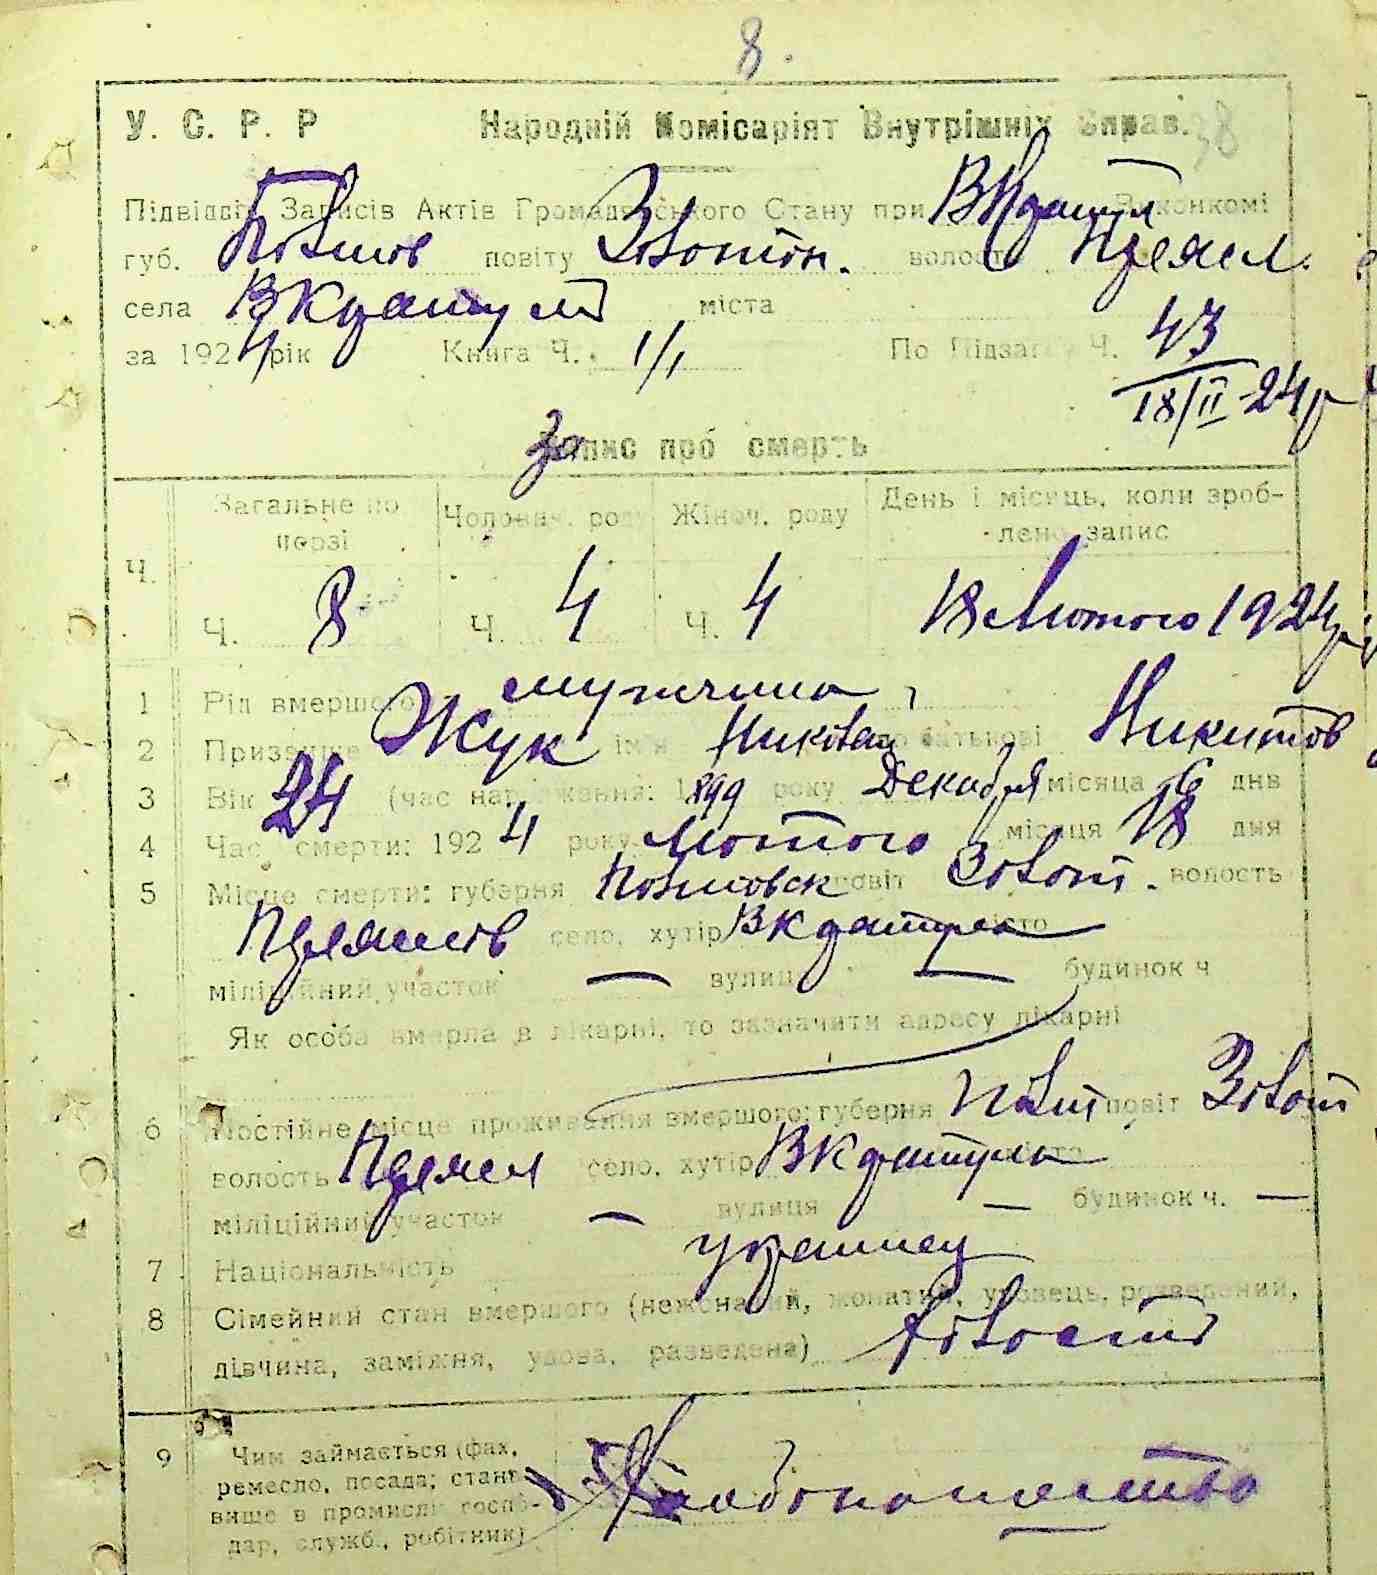 8.
У. С. Р. Р Народній Комісаріят Внутрішніх Справ. 38
Підвідділ Записів Актів Громадянського Стану при Виконкомі
губ. Полтов повіту Золотон. волость
села міста
за 1924 рік Книга Ч. 1/1 По Підзагсу Ч. 43
18/II-24р
Запис про смерть
Ч. Загальне по черзі Чоловіч. роду Жіноч. роду День і місяць, коли зроблено запис
Ч. 8 Ч. 4 Ч. 4 18 Лютого 1924р
1 Рід вмершого мужчина
2 Призвище Жук ім'я Николай по батькові Никитов
3 Вік 24 (час народження: 1899 року Декабря місяца 6 днв
4 Час смерти: 1924 року Лютого місяця 18 дня
5 Місце смерти: губерня Полтовск повіт Золот. волость
село, хутір місто
міліційний участок — вулиця — будинок ч
Як особа вмерла в лікарні, то зазначити адресу лікарні
6 Постійне місце проживання вмершого: губерня Полт повіт Золот
волость село, хутір місто
міліційний участок — вулиця — будинок ч. —
7 Національність украинец
8 Сімейний стан вмершого (нежонатий, жонатий, удовець, розведений,
дівчина, заміжня, удова, разведена) холост
9 Чим займається (фах,
ремесло, посада; стано-
вище в промислі госпо-
дар, служб., робітник) Хлебопашество